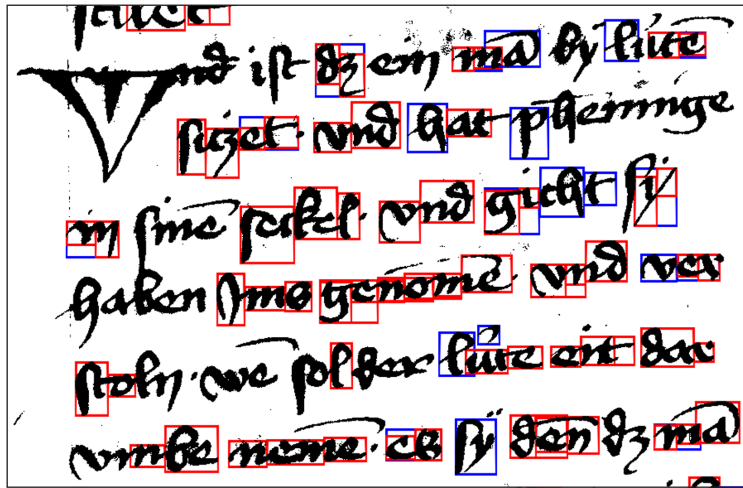 Vnd ist dz ein mā by lúte
sitzet · vnd hat pheninge
in sine sekel · vnd gicht si
haben Jme genomē · vnd ver
stoln · we sol der lúte eit dar
vmbe neme · eb sÿ den dz mā